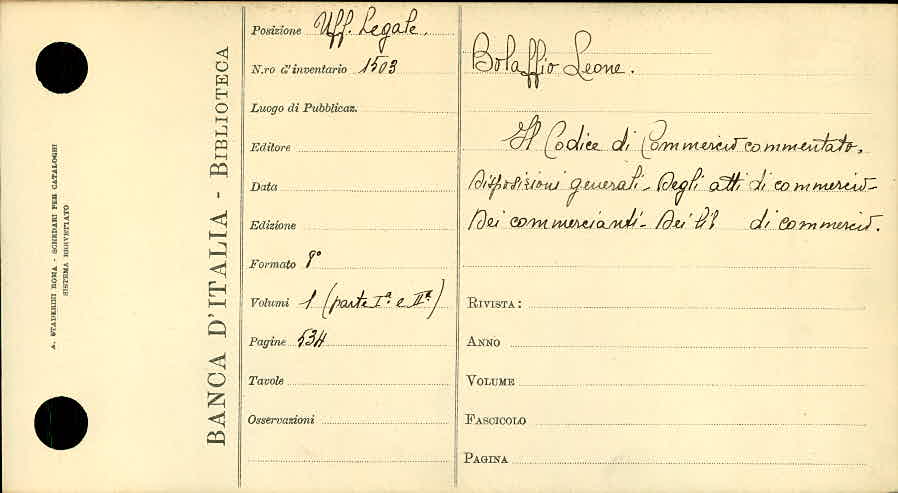 A. STADERINI ROMA - SCHEDARI PER CATALOGHI
SISTEMA BREVETTATO
BANCA D'ITALIA - BIBLIOTECA
Posizione Uff. Legale.
N.ro d'inventario 1503
Luogo di Pubblicaz.
Editore
Data
Edizione
Formato 8°
Volumi 1 (parte Iª. e IIª)
Pagine 534
Tavole
Osservazioni
Bolaffio Leone.
Il Codice di Commercio commentato.
Disposizioni generali - Degli atti di commercio -
Dei commercianti - Dei di commercio.
RIVISTA:
ANNO
VOLUME
FASCICOLO
PAGINA